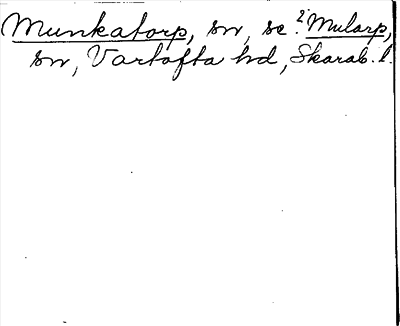 Munkatorp, sn, se ? Mularp,
sn, Vartofta hd, Skarab. l.